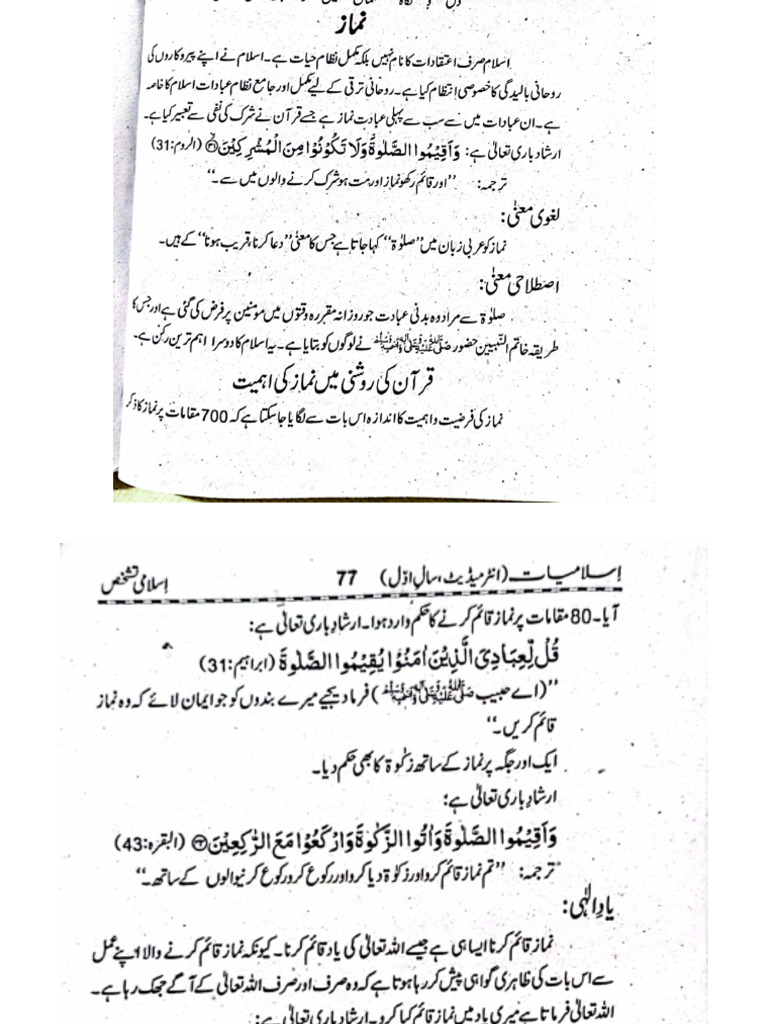 نماز
اسلام صرف اعتقادات کا نام نہیں بلکہ مکمل نظام حیات ہے۔ اسلام نے اپنے پیروکاروں کی
روحانی بالیدگی کا خصوصی انتظام کیا ہے۔ روحانی ترقی کے لیے مکمل اور جامع نظام عبادات اسلام کا خاصہ
ہے۔ ان عبادات میں سے سب سے پہلی عبادت نماز ہے جسے قرآن نے شرک کی نفی سے تعبیر کیا ہے۔
ارشاد باری تعالیٰ ہے: وَاَقِيْمُوا الصَّلٰوةَ وَلَا تَكُوْنُوْا مِنَ الْمُشْرِكِيْنَ ۳۱ (الروم:31)
ترجمہ: ”اور قائم رکھو نماز اور مت ہو شرک کرنے والوں میں سے۔“
لغوی معنیٰ:
نماز کو عربی زبان میں ”صلوٰۃ“ کہا جاتا ہے جس کا معنیٰ ”دعا کرنا، قریب ہونا“ کے ہیں۔
اصطلاحی معنیٰ:
صلوٰۃ سے مراد وہ بدنی عبادت جو روزانہ مقررہ وقتوں میں مومنین پر فرض کی گئی ہے اور جس کا
طریقہ خاتم النبیین حضور ﷺ نے لوگوں کو بتایا ہے۔ یہ اسلام کا دوسرا اہم ترین رکن ہے۔
قرآن کی روشنی میں نماز کی اہمیت
نماز کی فرضیت و اہمیت کا اندازہ اس بات سے لگایا جا سکتا ہے کہ 700 مقامات پر نماز کا ذکر
اسلامیات (انٹرمیڈیٹ، سالِ اوّل) 77 اسلامی تشخص
آیا۔ 80 مقامات پر نماز قائم کرنے کا حکم وارد ہوا۔ ارشاد باری تعالیٰ ہے:
قُلْ لِّعِبَادِيَ الَّذِيْنَ اٰمَنُوْا يُقِيْمُوا الصَّلٰوةَ (ابراہیم:31)
”(اے حبیب ﷺ) فرما دیجیے میرے بندوں کو جو ایمان لائے کہ وہ نماز
قائم کریں۔“
ایک اور جگہ پر نماز کے ساتھ زکوٰۃ کا بھی حکم دیا۔
ارشاد باری تعالیٰ ہے:
وَاَقِيْمُوا الصَّلٰوةَ وَاٰتُوا الزَّكٰوةَ وَارْكَعُوْا مَعَ الرّٰكِعِيْنَ ۴۳ (البقرہ:43)
ترجمہ: ”تم نماز قائم کرو اور زکوٰۃ دیا کرو اور رکوع کرو رکوع کرنیوالوں کے ساتھ۔“
یادِ الٰہی:
نماز قائم کرنا ایسا ہی ہے جیسے اللہ تعالیٰ کی یاد قائم کرنا۔ کیونکہ نماز قائم کرنے والا اپنے عمل
سے اس بات کی ظاہری گواہی پیش کر رہا ہوتا ہے کہ وہ صرف اور صرف اللہ تعالیٰ کے آگے جھک رہا ہے۔
اللہ تعالیٰ فرماتا ہے میری یاد میں نماز قائم کیا کرو۔ ارشاد باری تعالیٰ ہے: